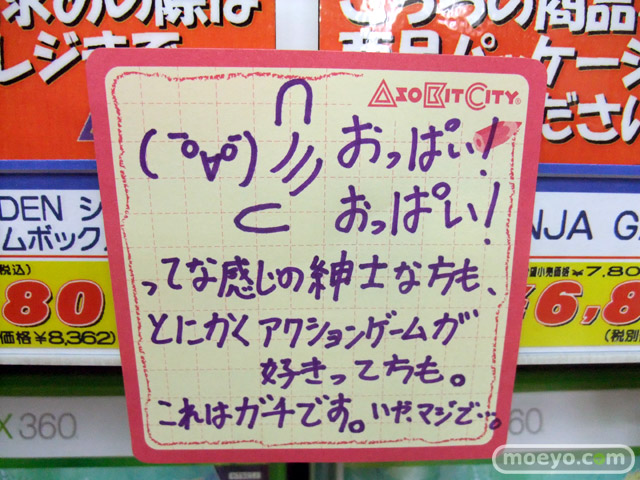 求めの際は
レジまで
こちらの商品
商品パッケージ
ださい
ASOBITCITY®
( ̄o∀o ̄)
おっぱい!
⊂ おっぱい!
ってな感じの紳士な方も、
とにかくアクションゲームが
好きって方も。
これはガチです。いや、マジで…。
DEN シ
ムボック
NJA GA
税込)
80
価格¥8,362)
小売価格 ¥7,80
¥6,8
(税別
X 360
60
moeyo.com